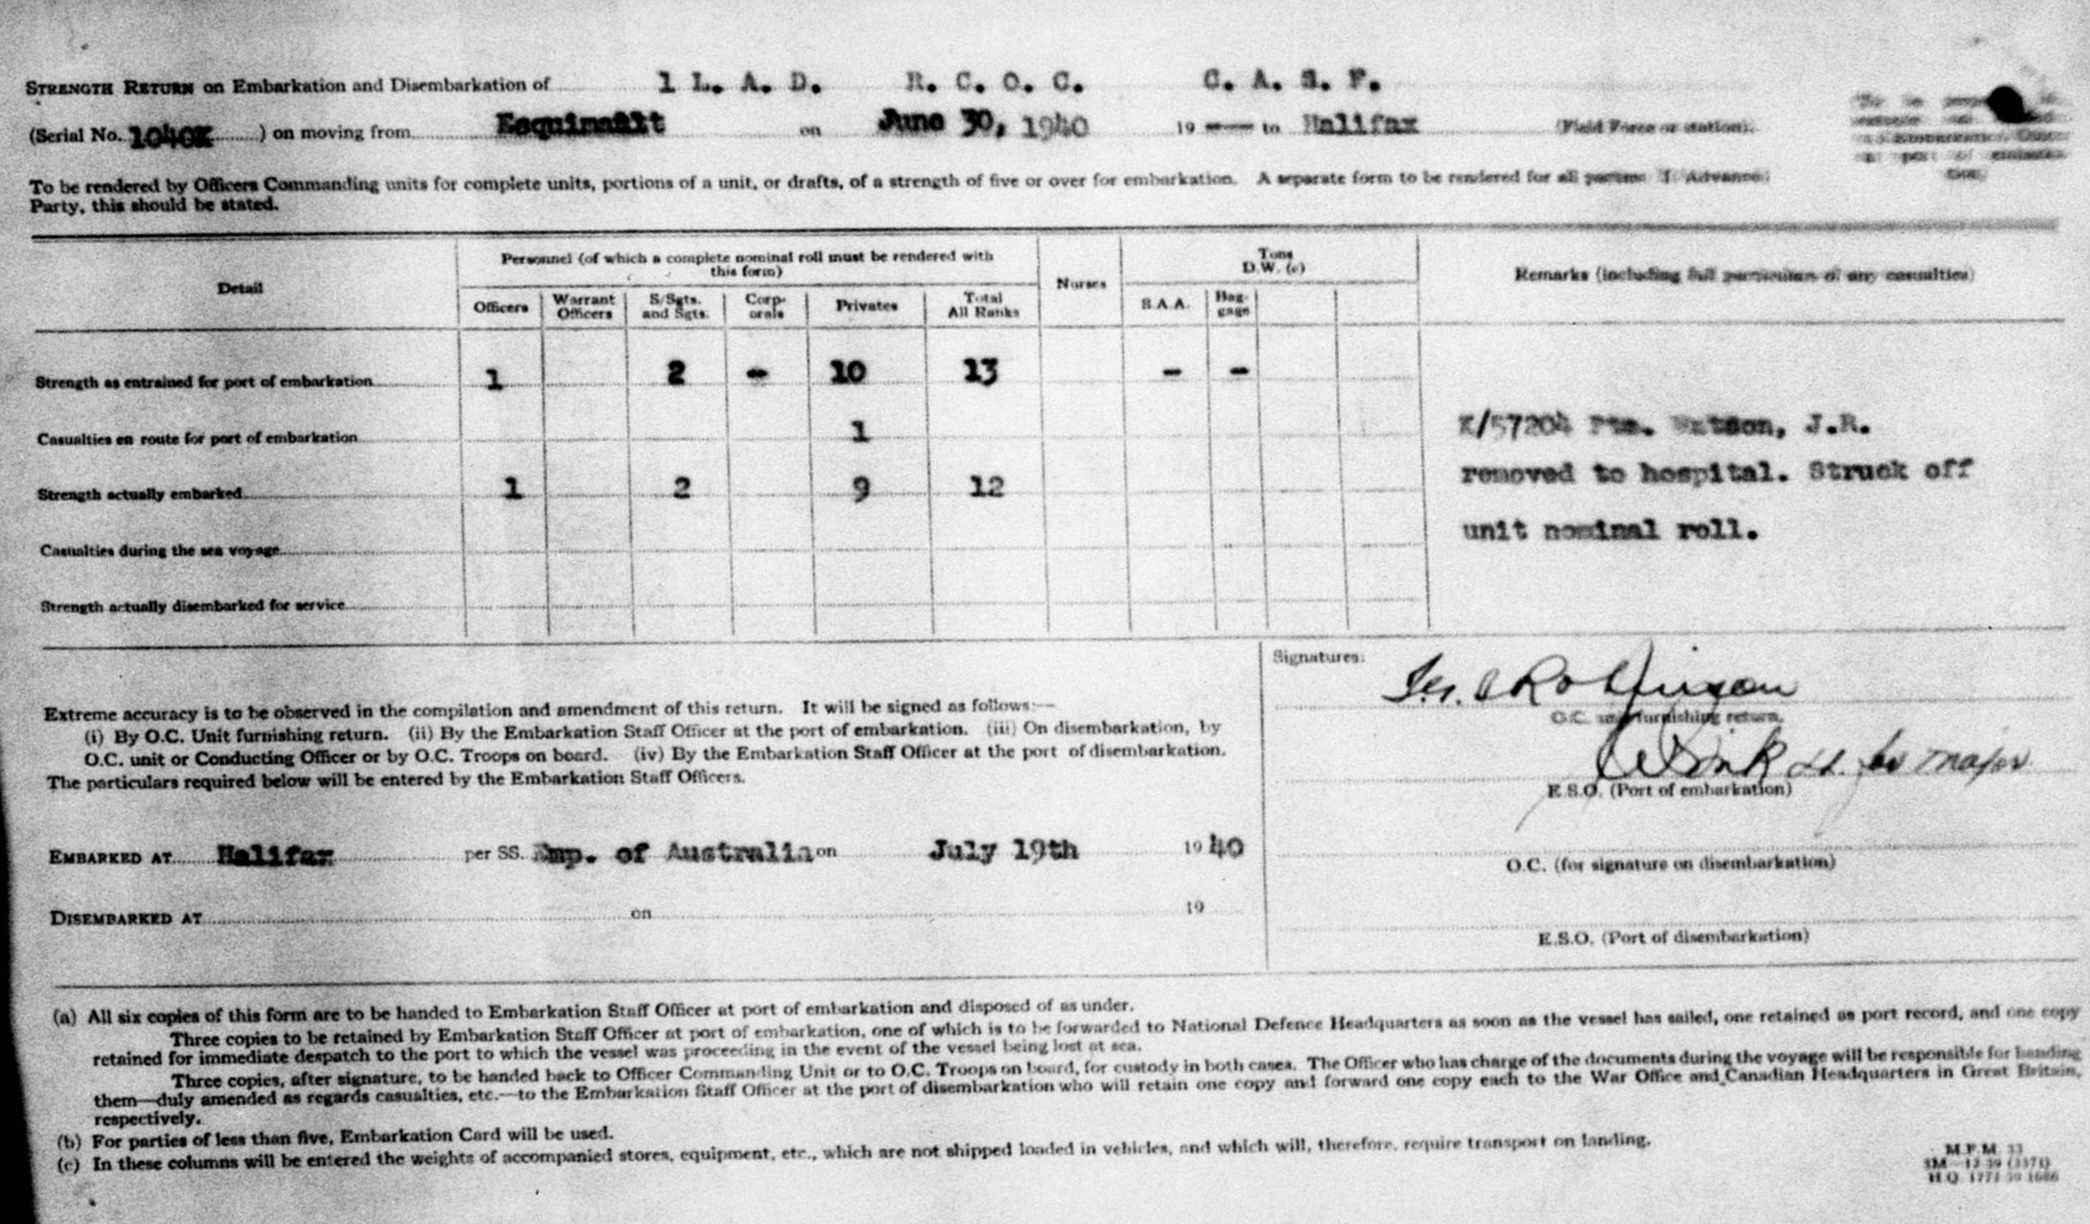 STRENGTH RETURN on Embarkation and Disembarkation of 1 L. A. D. R. C. O. C. C. A. S. F.
(Serial No. 1040K ) on moving from Esquimalt on June 30, 1940 19 to Halifax (Field Force or station).
To be rendered by Officers Commanding units for complete units, portions of a unit, or drafts, of a strength of five or over for embarkation. A separate form to be rendered for all parties. If Advance
Party, this should be stated.
Detail
Personnel (of which a complete nominal roll must be rendered with
this form)
Nurses
Tons
D.W. (c)
Remarks (including full particulars of any casualties)
Officers Warrant Officers S/Sgts. and Sgts. Corp- orals Privates Total All Ranks S.A.A. Bag- gage
Strength as entrained for port of embarkation 1 2 - 10 13 - -
Casualties en route for port of embarkation 1
K/57204 Pte. Watson, J.R.
removed to hospital. Struck off
Strength actually embarked 1 2 9 12
unit nominal roll.
Casualties during the sea voyage
Strength actually disembarked for service
Extreme accuracy is to be observed in the compilation and amendment of this return. It will be signed as follows:—
(i) By O.C. Unit furnishing return. (ii) By the Embarkation Staff Officer at the port of embarkation. (iii) On disembarkation, by
O.C. unit or Conducting Officer or by O.C. Troops on board. (iv) By the Embarkation Staff Officer at the port of disembarkation.
The particulars required below will be entered by the Embarkation Staff Officers.
EMBARKED AT Halifax per SS. Emp. of Australia on July 19th 1940
DISEMBARKED AT on 19
Signatures:
Robinson
O.C. unit furnishing return.
Lt. for Major
E.S.O. (Port of embarkation)
O.C. (for signature on disembarkation)
E.S.O. (Port of disembarkation)
(a) All six copies of this form are to be handed to Embarkation Staff Officer at port of embarkation and disposed of as under.
Three copies to be retained by Embarkation Staff Officer at port of embarkation, one of which is to be forwarded to National Defence Headquarters as soon as the vessel has sailed, one retained as port record, and one copy
retained for immediate despatch to the port to which the vessel was proceeding in the event of the vessel being lost at sea.
Three copies, after signature, to be handed back to Officer Commanding Unit or to O.C. Troops on board, for custody in both cases. The Officer who has charge of the documents during the voyage will be responsible for handing
them—duly amended as regards casualties, etc.—to the Embarkation Staff Officer at the port of disembarkation who will retain one copy and forward one copy each to the War Office and Canadian Headquarters in Great Britain,
respectively.
(b) For parties of less than five, Embarkation Card will be used.
(c) In these columns will be entered the weights of accompanied stores, equipment, etc., which are not shipped loaded in vehicles, and which will, therefore, require transport on landing.
M.F.M. 33
H.Q. 1771-39-1686